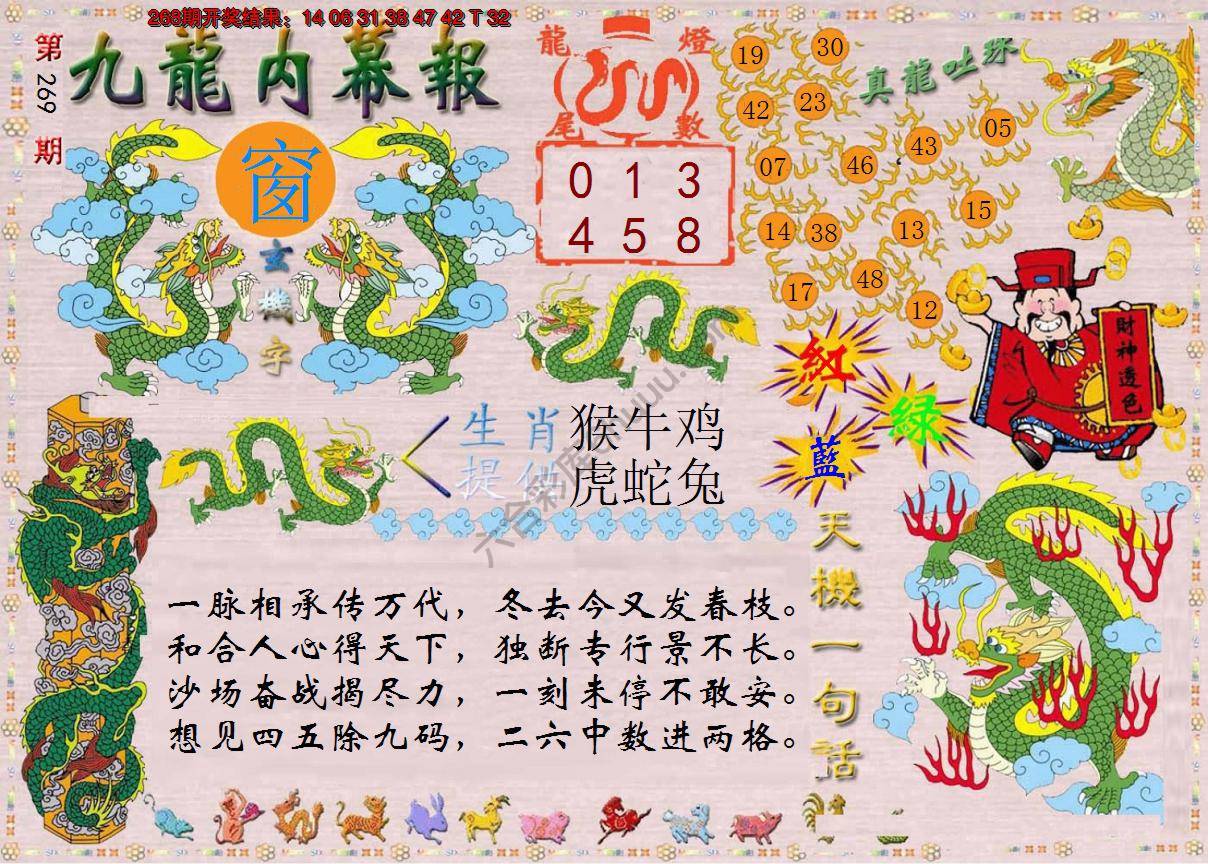 268期开奖结果：14 06 31 38 47 42 T 32
第269期
九龍内幕報
窗
玄機字
龍燈
尾數
0 1 3
4 5 8
真龍吐珠
19 30
42 23
43 05
07 46
15
14 38 13
48
17 12
紅
綠
藍
財神透色
生肖 猴牛鸡
提供 虎蛇兔
天機一句話
一脉相承传万代，冬去今又发春枝。
和合人心得天下，独断专行景不长。
沙场奋战揭尽力，一刻未停不敢安。
想见四五除九码，二六中数进两格。